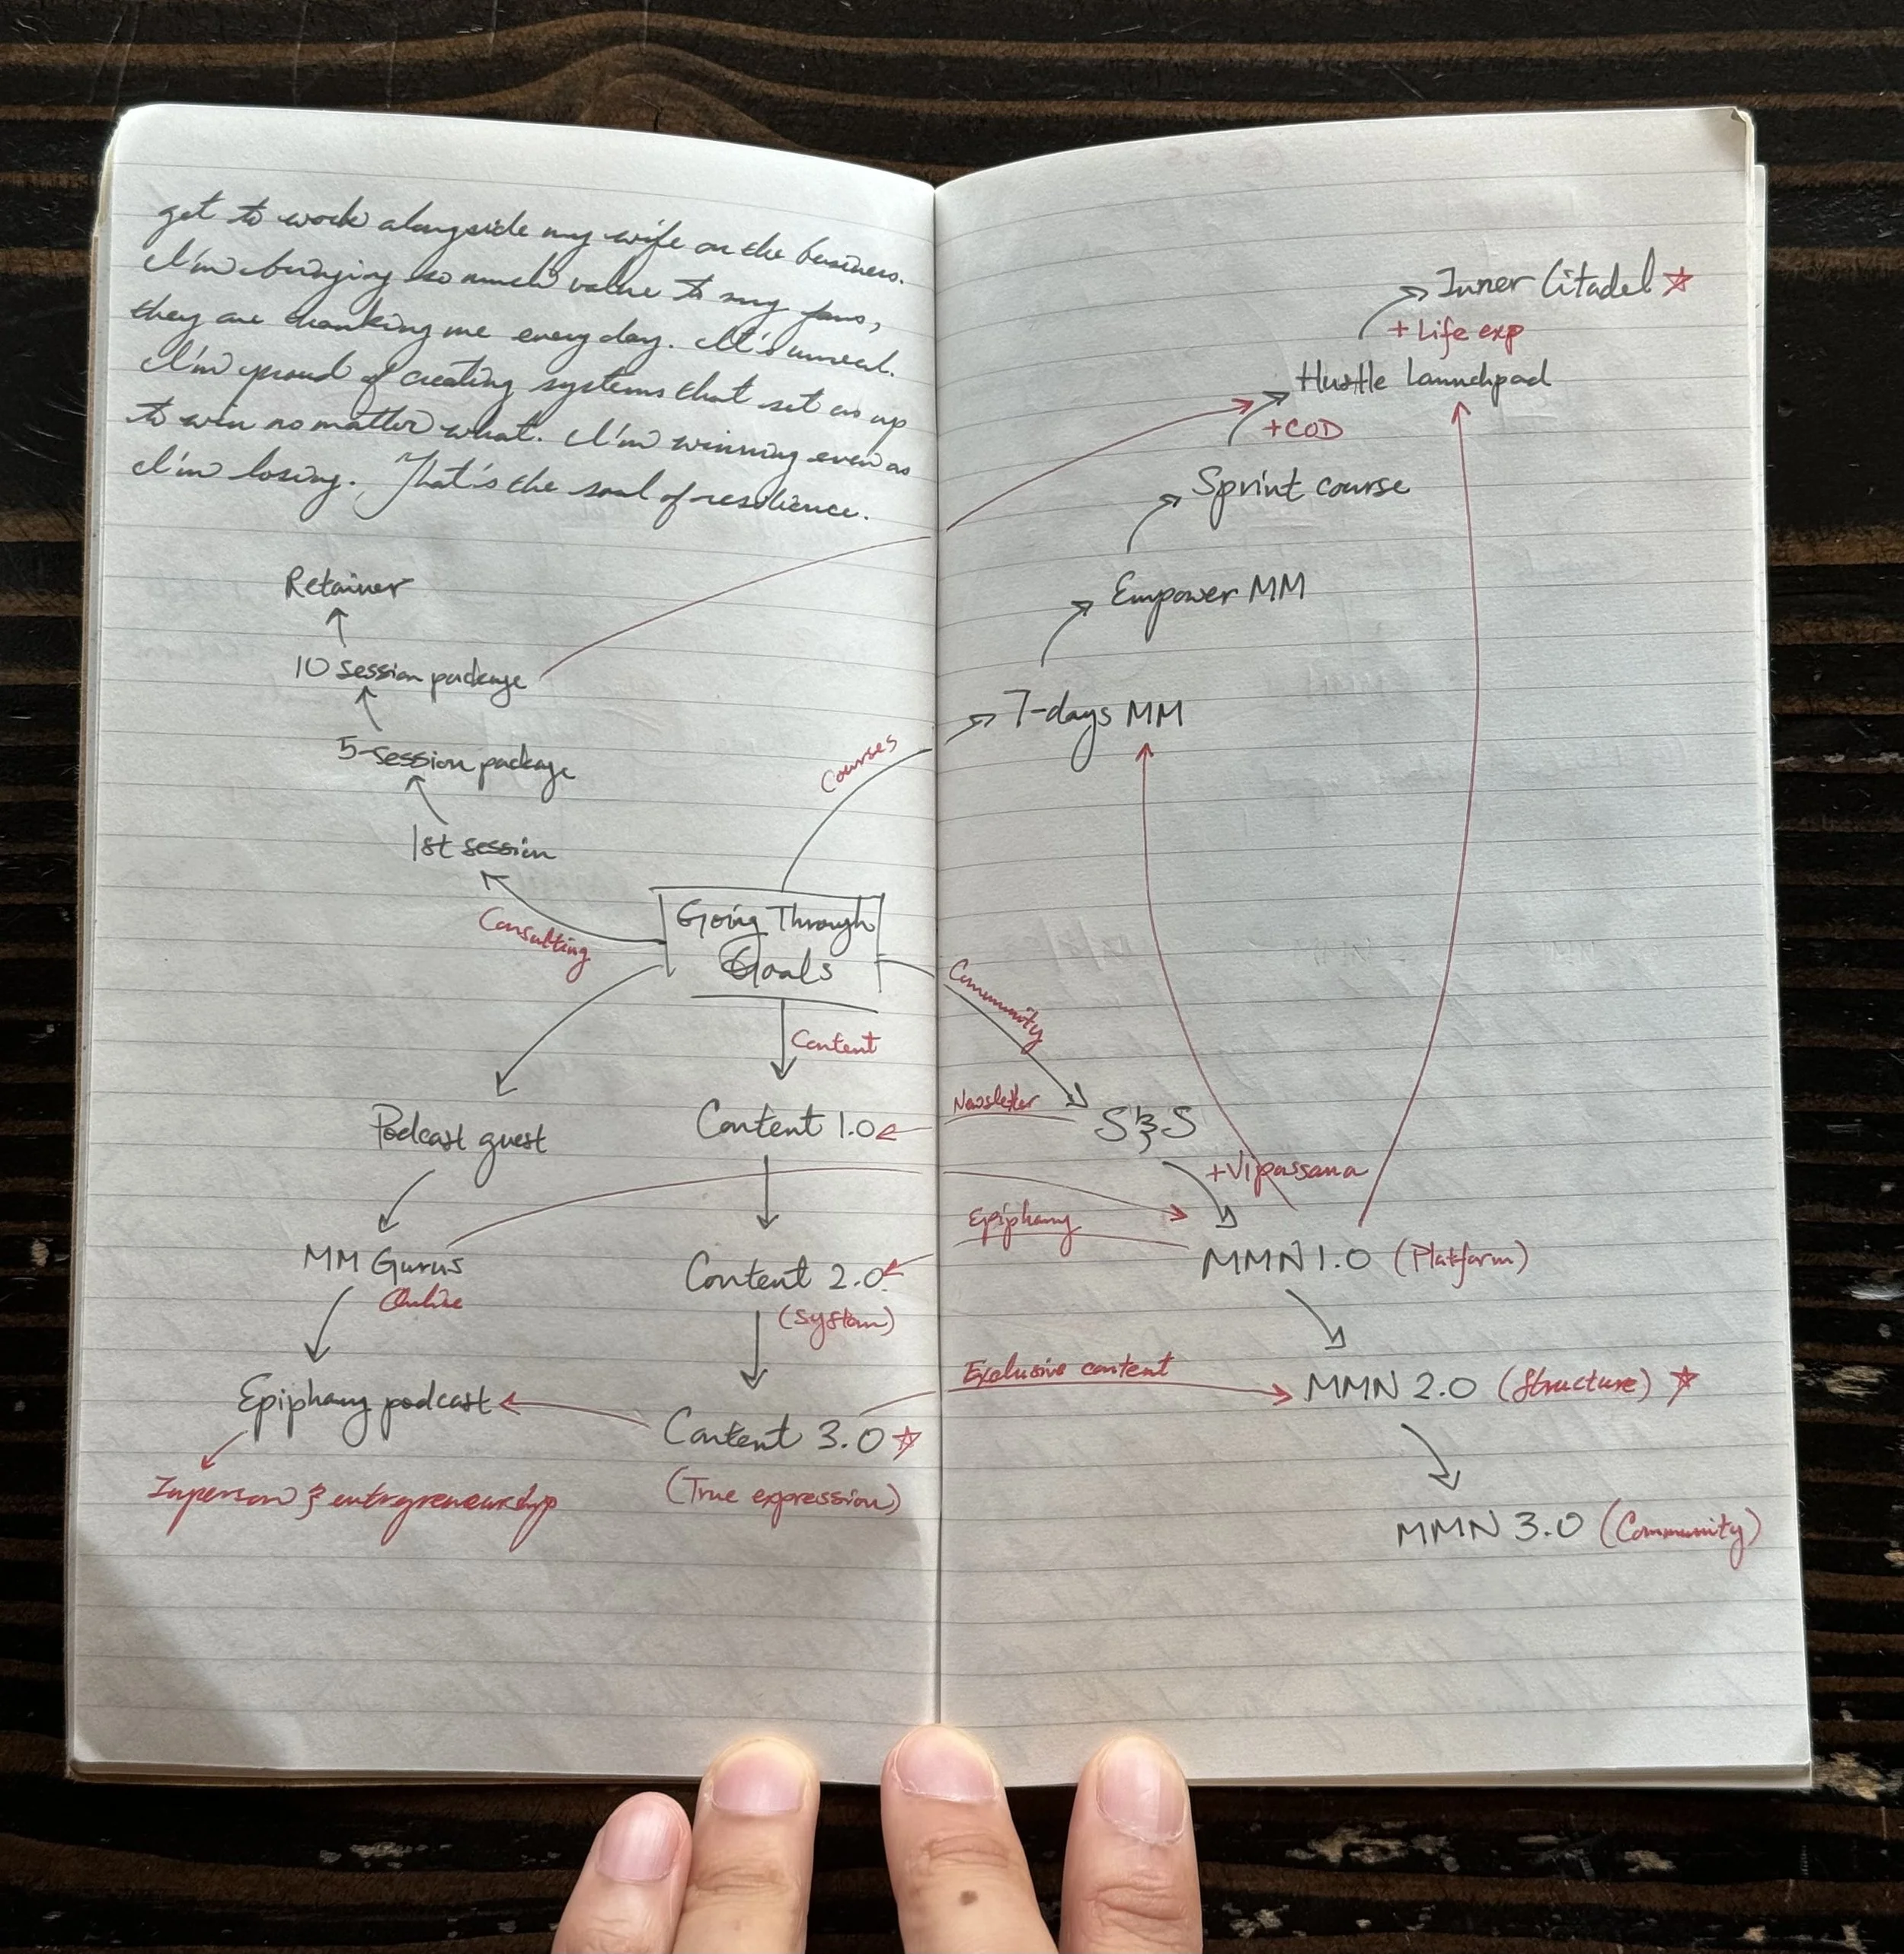 get to work alongside my wife on the business.
I'm bringing so much value to my fans,
they are thanking me every day. It's unreal.
I'm proud of creating systems that set us up
to win no matter what. I'm winning even as
I'm losing. That's the soul of resilience.
Retainer
10 session package
5-session package
1st session
Consulting
Courses
Going Through
Goals
Content
Podcast guest
MM Gurus
Online
Epiphany podcast
Inperson & entrepreneurship
Content 1.0
Content 2.0
(System)
Content 3.0
(True expression)
Inner Citadel
+ Life exp
Hustle Launchpad
+COD
Sprint course
Empower MM
7-days MM
Community
Newsletter
S&S
+Vipassana
Epiphany
MMN 1.0 (Platform)
Exclusive content
MMN 2.0 (Structure)
MMN 3.0 (Community)